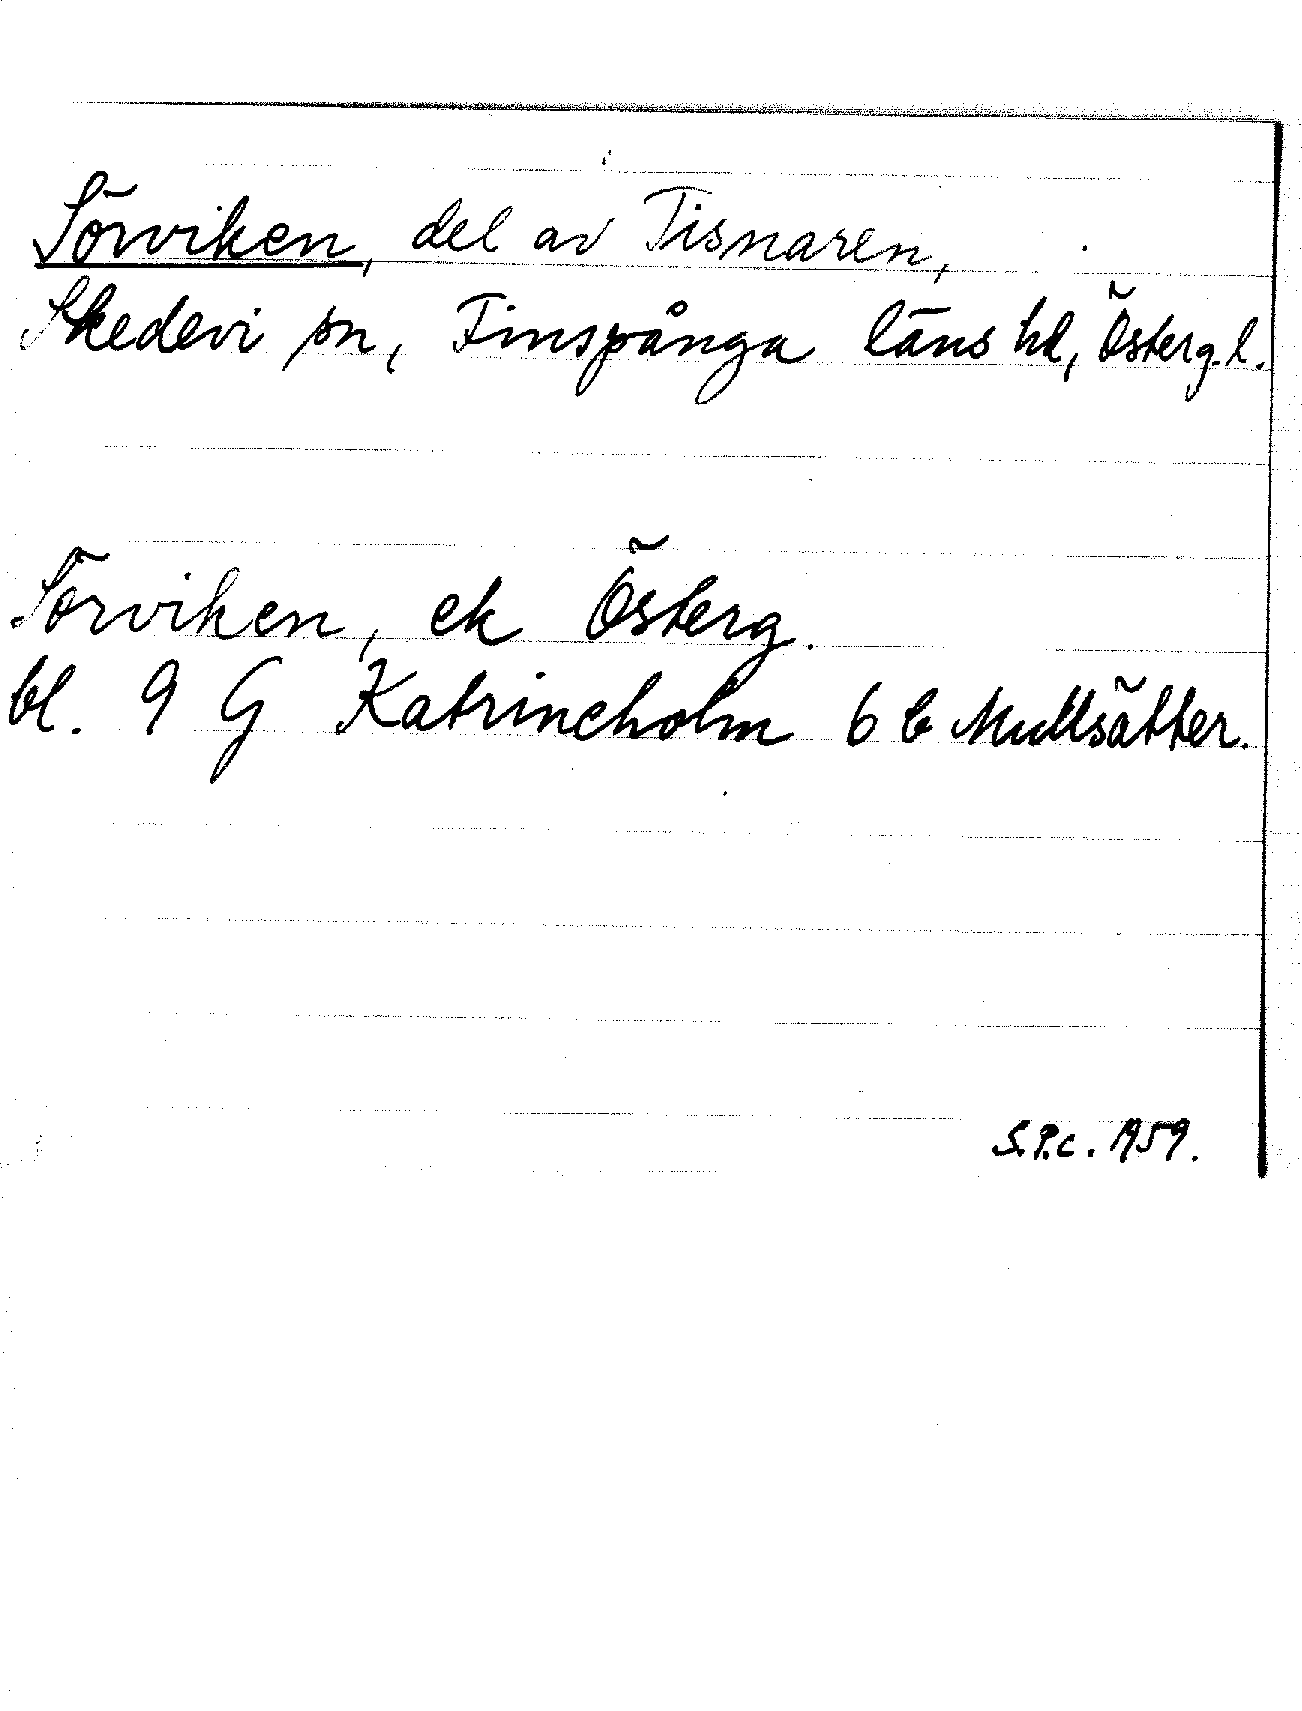 Sörviken, del av Tisnaren,
Skedevi sn, Finspånga läns hd, Österg. l.
Sörviken, ek Österg.
bl. 9 G Katrineholm 6 b Mullsätter.
S.P.c. 1959.